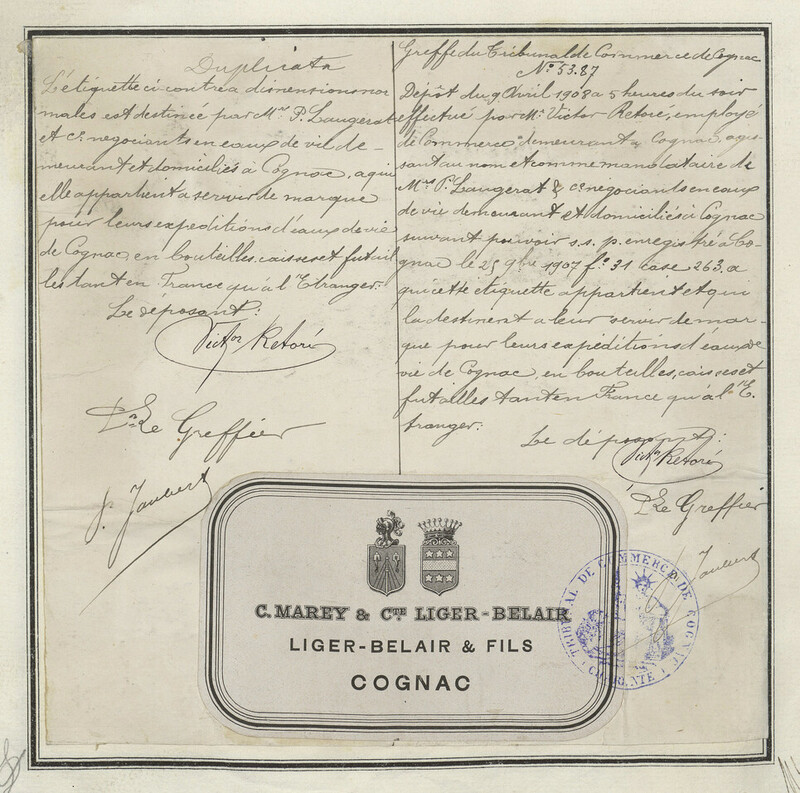 Duplicata
L'étiquette ci-contre a dimensions nor
males est destinée par Mrs P. Laugerat
et Cie négociants en eaux de vie de-
meurant et domiciliés à Cognac, a qui
elle appartient a servir de marque
pour leurs expéditions d'eaux de vie
de Cognac, en bouteilles, caisses et futail
les tant en France qu'à l'Etranger.
Le déposant:
Victor Retoré
Le Greffier
Jaubert
Greffe du Tribunal de Commerce de Cognac
No 53.87
Dépôt du 9 Avril 1908 a 5 heures du soir
effectué par Mr Victor Retoré, employé
de Commerce demeurant a Cognac, agis
sant au nom et comme mandataire de
Mrs P. Laugerat & Cie négociants en eaux
de vie demeurant et domiciliés à Cognac
suivant pouvoir s.s.p. enregistré à Co-
gnac le 25 9bre 1907 fo 31 case 263, a
qui cette etiquette appartient et qui
la destinent a leur servir de mar-
que pour leurs expéditions d'eaux de
vie de Cognac, en bouteilles, caisses et
futailles tant en France qu'à l'E-
tranger.
Le déposant:
Victor Retoré
Le Greffier
Jaubert
C. MAREY & CTE LIGER-BELAIR
LIGER-BELAIR & FILS
COGNAC
TRIBUNAL DE COMMERCE DE COGNAC
CHARENTE